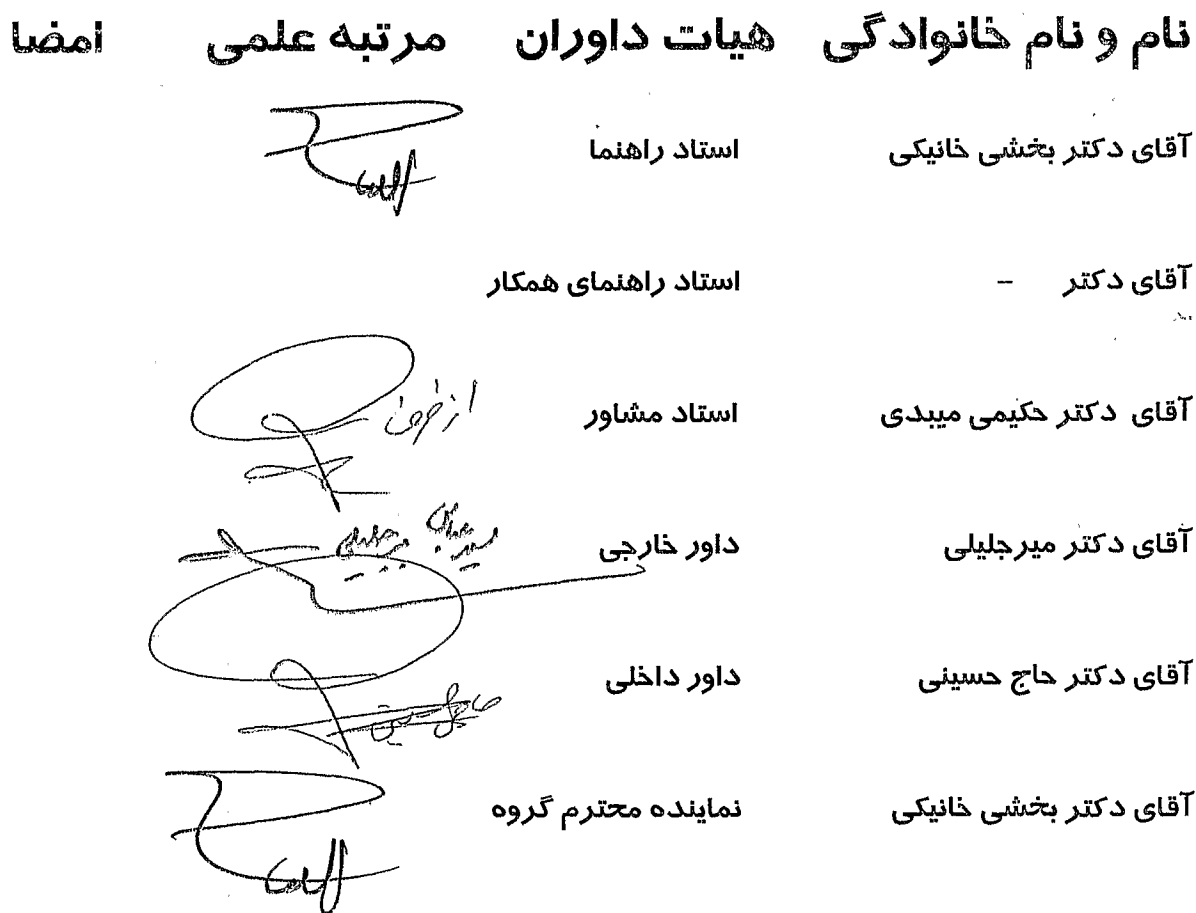 نام و نام خانوادگی هیات داوران مرتبه علمی امضا
آقای دکتر بخشی خانیکی استاد راهنما
آقای دکتر - استاد راهنمای همکار
آقای دکتر حکیمی میبدی استاد مشاور از طرف
آقای دکتر میرجلیلی داور خارجی
آقای دکتر حاج حسینی داور داخلی
آقای دکتر بخشی خانیکی نماینده محترم گروه